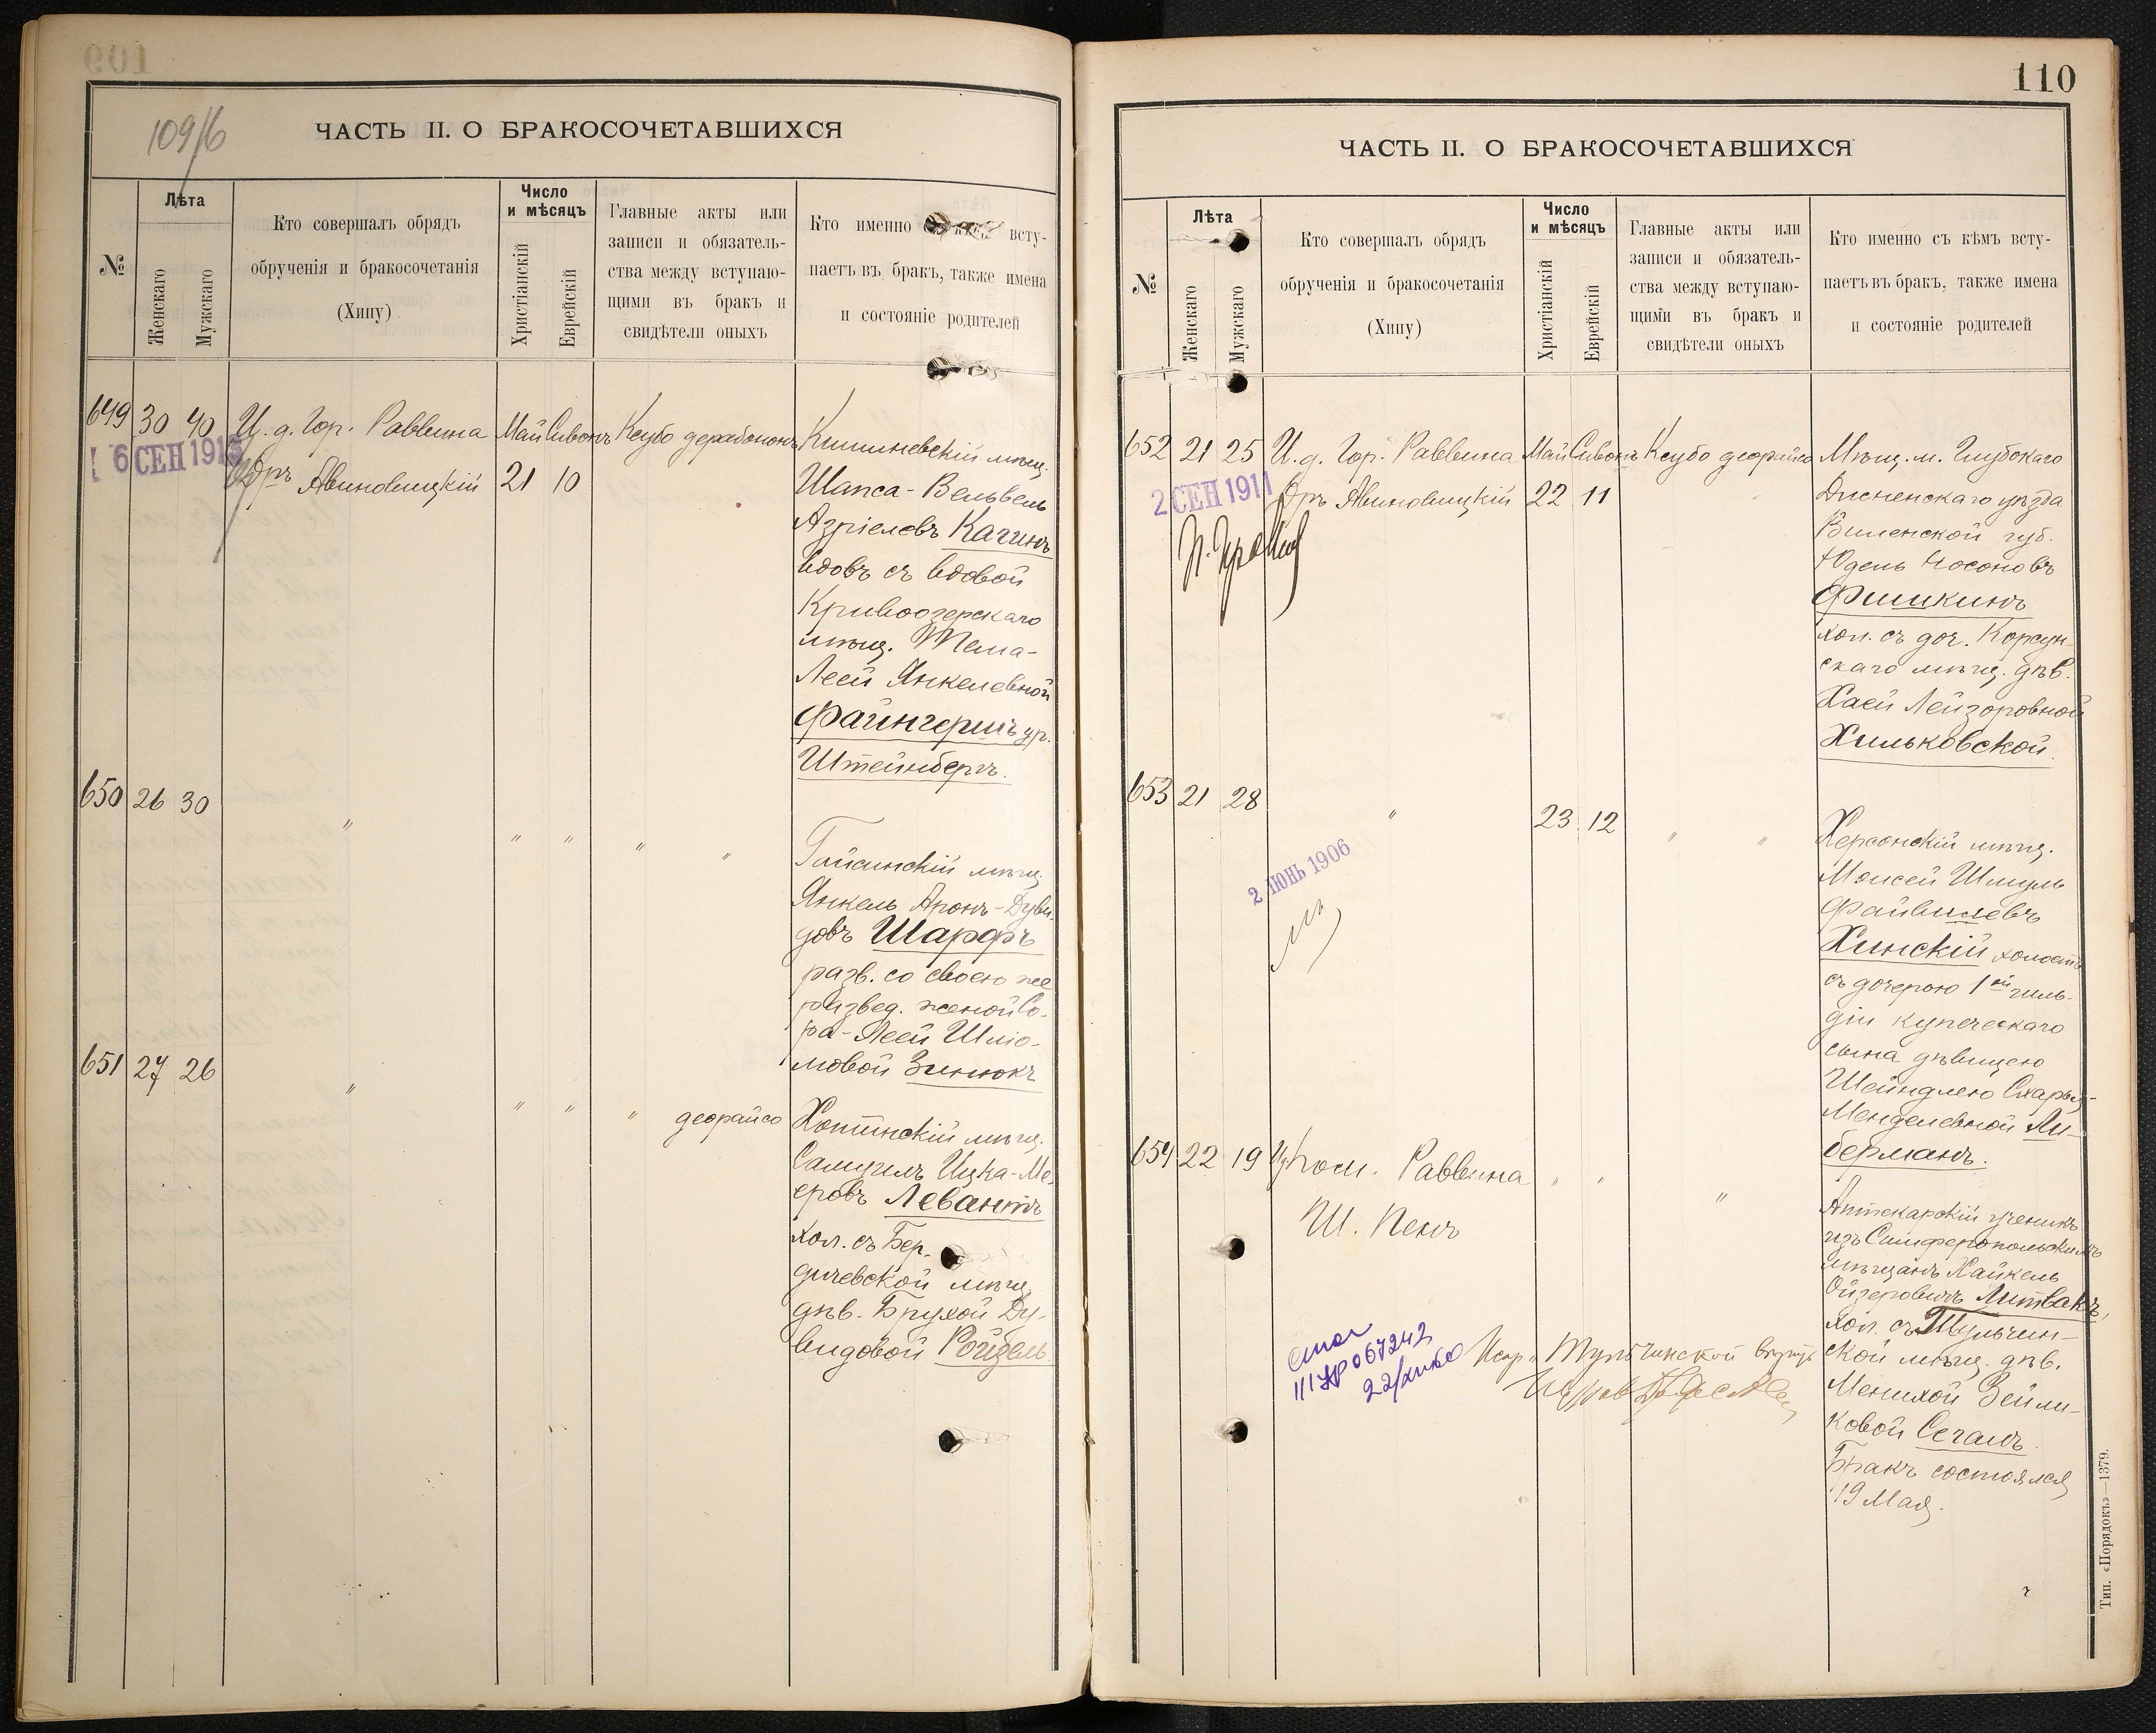 109/б
ЧАСТЬ II. О БРАКОСОЧЕТАВШИХСЯ
№
Лѣта
Женскаго
Мужскаго
Кто совершалъ обрядъ
обрученія и бракосочетанія
(Хипу)
Число
и мѣсяцъ
Христіанскій
Еврейскій
Главные акты или
записи и обязатель-
ства между вступаю-
щими въ бракъ и
свидѣтели оныхъ
Кто именно всту-
паетъ въ бракъ, также имена
и состояніе родителей
649 30 40 И. д. Гор. Раввина Май Сивонъ Ксубо дерабононъ Кишиневскій мѣщ.
6 СЕН 1915
Дръ Авиновицкій 21 10 Шапса-Вельвель
Азріелевъ Кагинъ
вдовъ съ вдовой
Кривоозерскаго
мѣщ.
Леей Янкелевной
Файнгершъ ур.
Штейнбергъ.
650 26 30 " " " " " Гайсинскій мѣщ.
Янкель Аронъ-Дуви-
довъ Шарфъ
разв. со своею же
развед. женой Со-
ра-Леей Шліо-
мовой Зинюкъ
651 27 26 " " " " деорайсо Хотинскій мѣщ.
Самуилъ Ицка-Ме-
еровъ Левантъ
хол. съ Бер-
дичевской мѣщ.
дѣв. Брухой Ду-
видовой Ройзель
110
ЧАСТЬ II. О БРАКОСОЧЕТАВШИХСЯ
№
Лѣта
Женскаго
Мужскаго
Кто совершалъ обрядъ
обрученія и бракосочетанія
(Хипу)
Число
и мѣсяцъ
Христіанскій
Еврейскій
Главные акты или
записи и обязатель-
ства между вступаю-
щими въ бракъ и
свидѣтели оныхъ
Кто именно съ кѣмъ всту-
паетъ въ бракъ, также имена
и состояніе родителей
652 21 25 И. д. Гор. Раввина Май Сивонъ Ксубо деорайсо Мѣщ. м. Глубокаго
2 СЕН 1911
Дръ Авиновицкій 22 11 Дисненскаго уѣзда
Виленской губ.
Юдель Носоновъ
Фишкинъ
хол. съ доч. Корсун-
скаго мѣщ. дѣв.
Хаей Лейзоровной
Хильковской.
653 21 28 " 23 12 " " Херсонскій мѣщ.
Моисей Шмуль
Файвилевъ
2 ІЮНЬ 1906
Хинскій холостъ
съ дочерью 1ой гиль-
діи купеческаго
сына дѣвицею
Шейндлею Схарья-
Менделевной Ли-
берманъ.
654 22 19 Пом. Раввина " " " Аптекарскій ученикъ
Ш. Пенъ
изъ Симферопольскихъ
мѣщанъ Хайкель
Ойзеровичъ Литвакъ,
хол. съ Тульчин-
ской мѣщ. дѣв.
Менихой Зейли-
ковой Сегалъ.
Бракъ состоялся
19 Мая.
067242
Испр. Тульчинской
Тип. «Порядокъ»—1379.